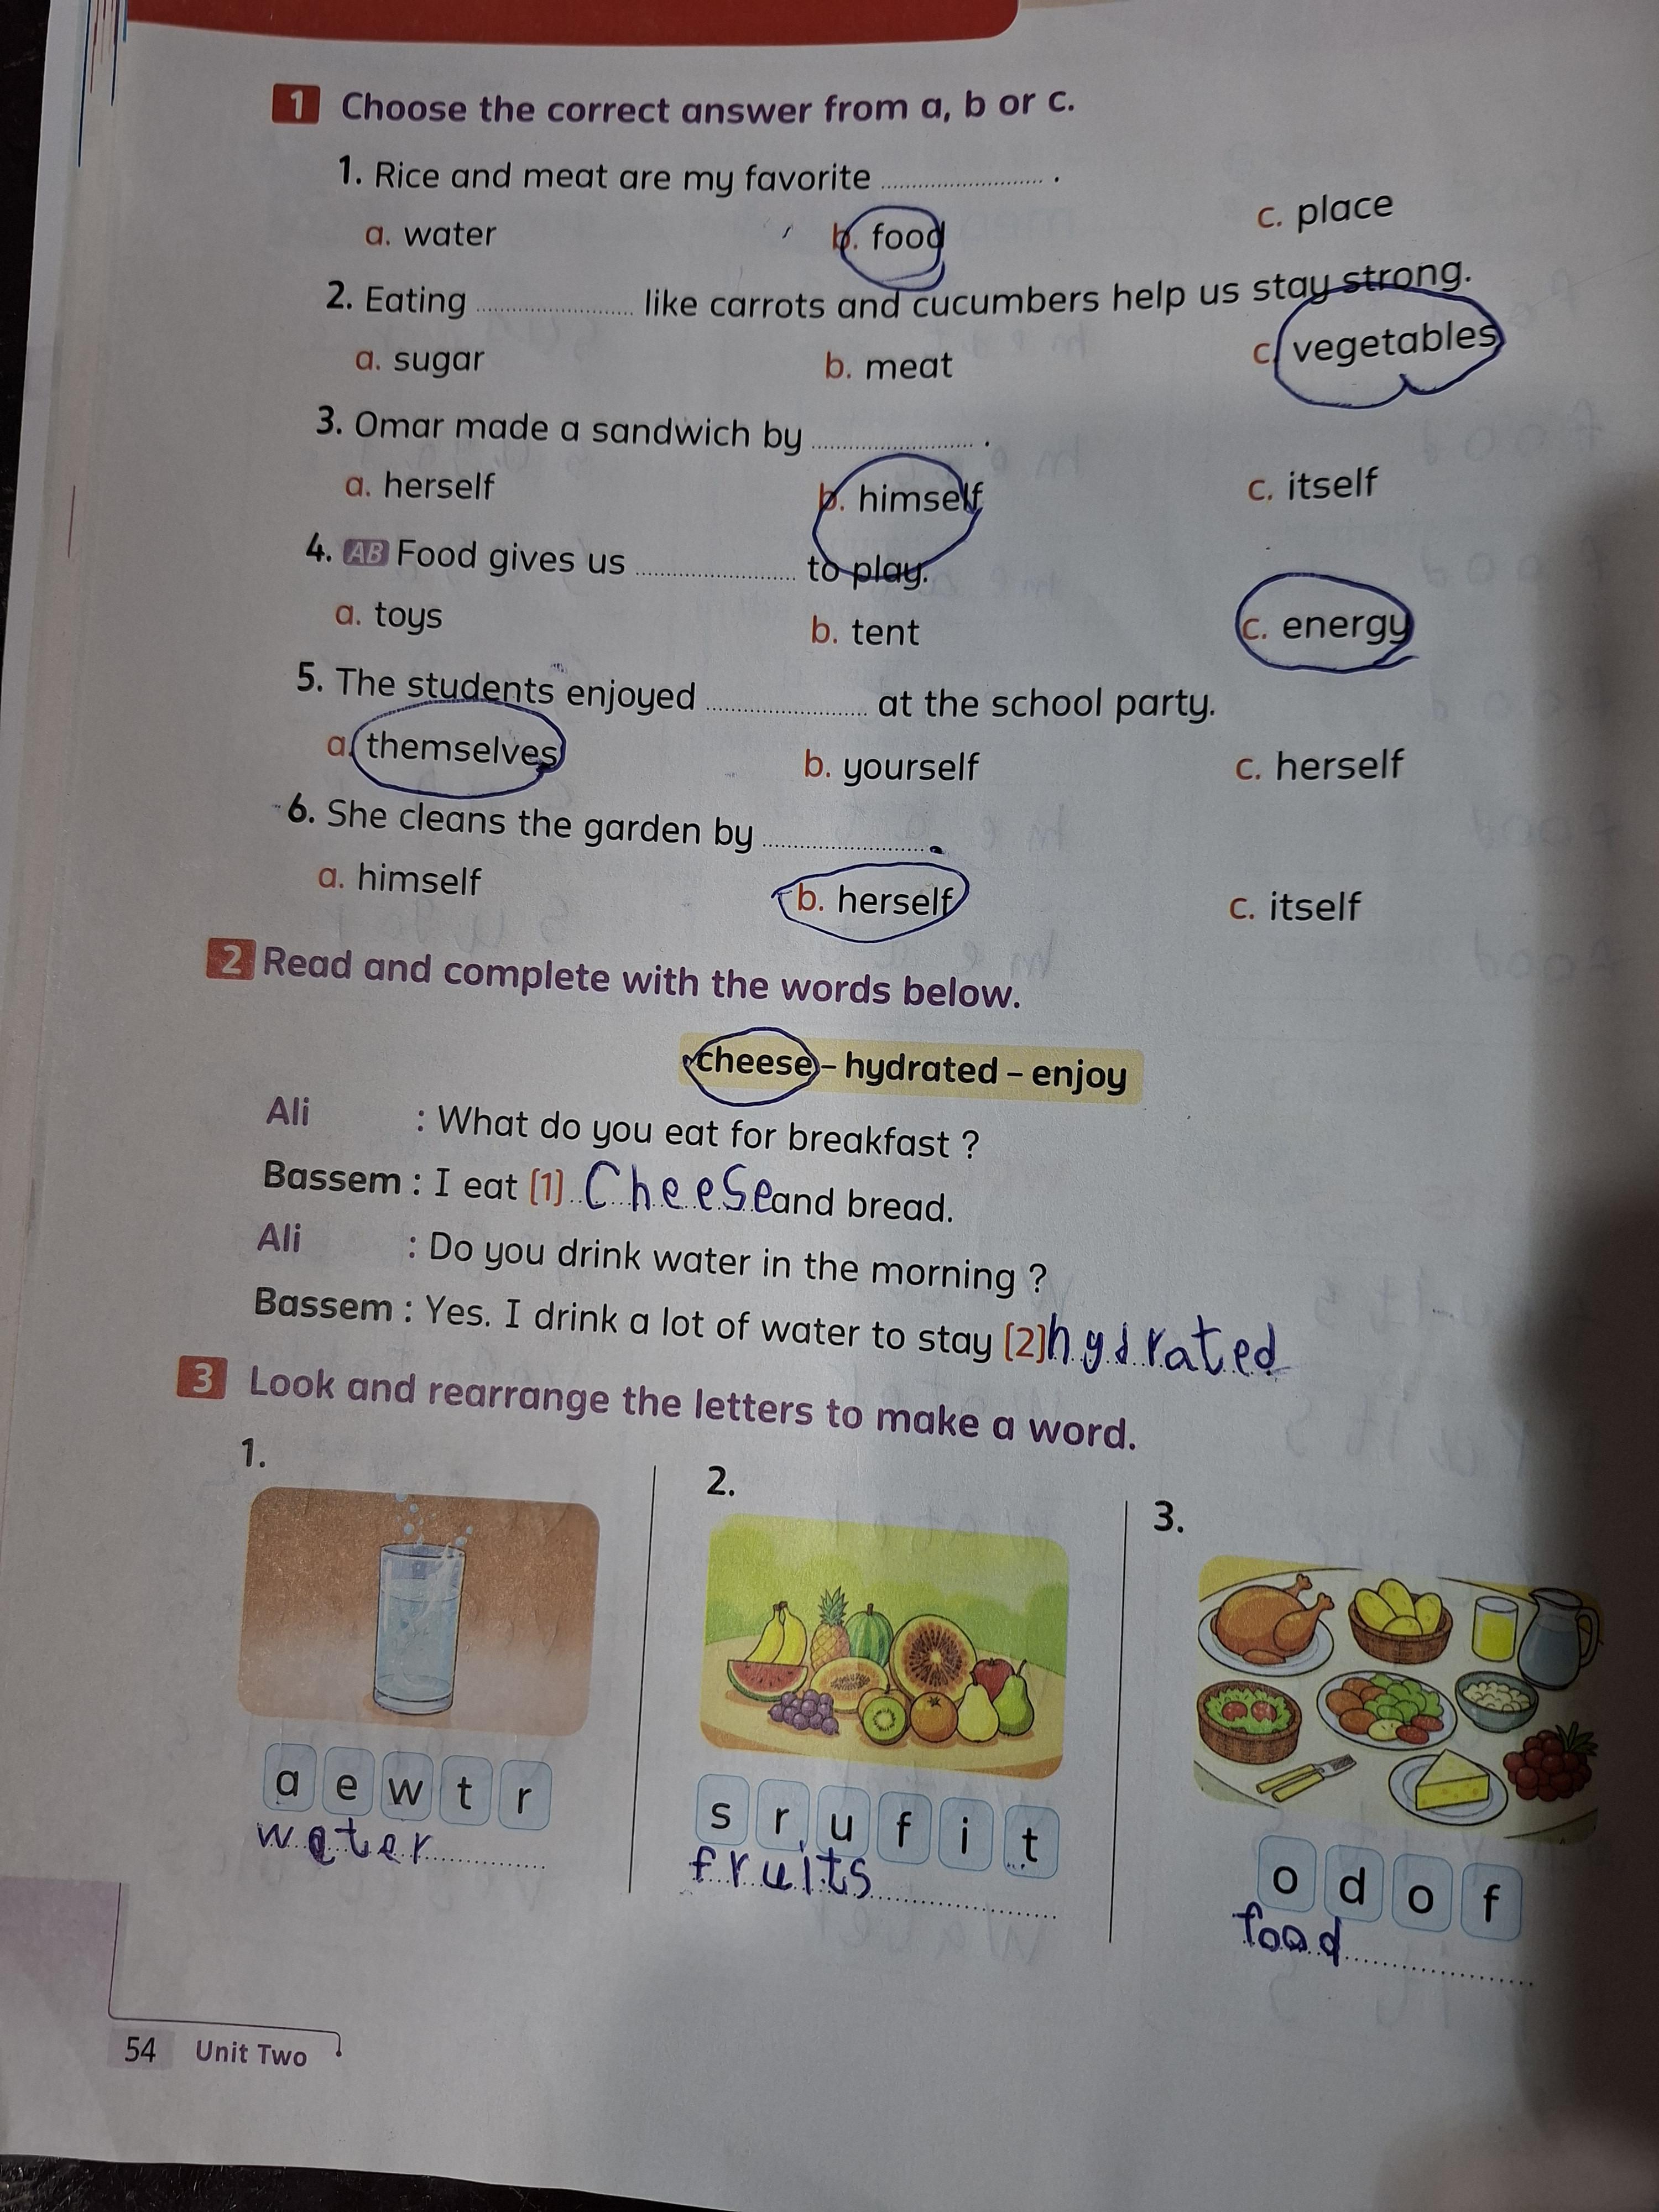 1 Choose the correct answer from a, b or c.
1. Rice and meat are my favorite .................... .
a. water b. food c. place
2. Eating .................... like carrots and cucumbers help us stay strong.
a. sugar b. meat c. vegetables
3. Omar made a sandwich by .................... .
a. herself b. himself c. itself
4. AB Food gives us .................... to play.
a. toys b. tent c. energy
5. The students enjoyed .................... at the school party.
a. themselves b. yourself c. herself
6. She cleans the garden by .................... .
a. himself b. herself c. itself
2 Read and complete with the words below.
cheese – hydrated – enjoy
Ali : What do you eat for breakfast ?
Bassem : I eat (1) Cheese and bread.
Ali : Do you drink water in the morning ?
Bassem : Yes. I drink a lot of water to stay (2) hydrated
3 Look and rearrange the letters to make a word.
1. 2. 3.
a e w t r
water
s r u f i t
fruits
o d o f
food
54 Unit Two